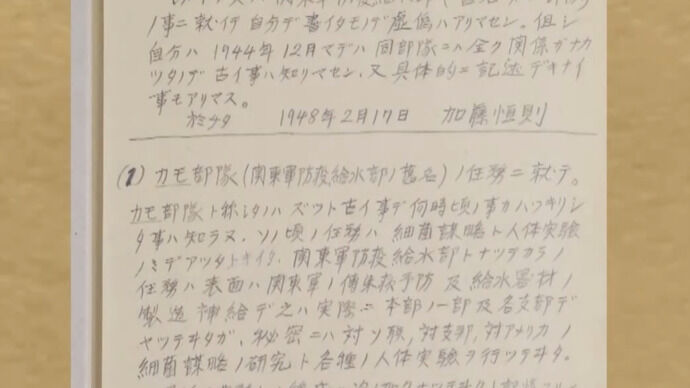 ノ事ニ就イテ自分デ書イタモノデ虚偽ハアリマセン。但シ
自分ハ1944年12月マデハ同部隊ニハ全ク関係ガナカ
ツタノデ古イ事ハ知リマセン。又具体的ニ記述デキナイ
事モアリマス。
於チタ 1948年2月17日 加藤恒則
(1) カモ部隊(関東軍防疫給水部ノ旧名)ノ任務ニ就テ。
カモ部隊ト称シタノハズツト古イ事デ何時頃ノ事カハツキリシ
タ事ハ知ラヌ。ソノ頃ノ任務ハ細菌謀略ト人体実験
ノミデアツタトキイタ。関東軍防疫給水部トナツテカラノ
任務ハ表面ハ関東軍ノ傳染病予防及給水器材ノ
製造補給デ之ハ実際ニ本部ノ一部及各支部デ
ヤツテヰタガ、秘密ニハ対ソ聯,対支那,対アメリカノ
細菌謀略ノ研究ト各種ノ人体実験ヲ行ツテヰタ。